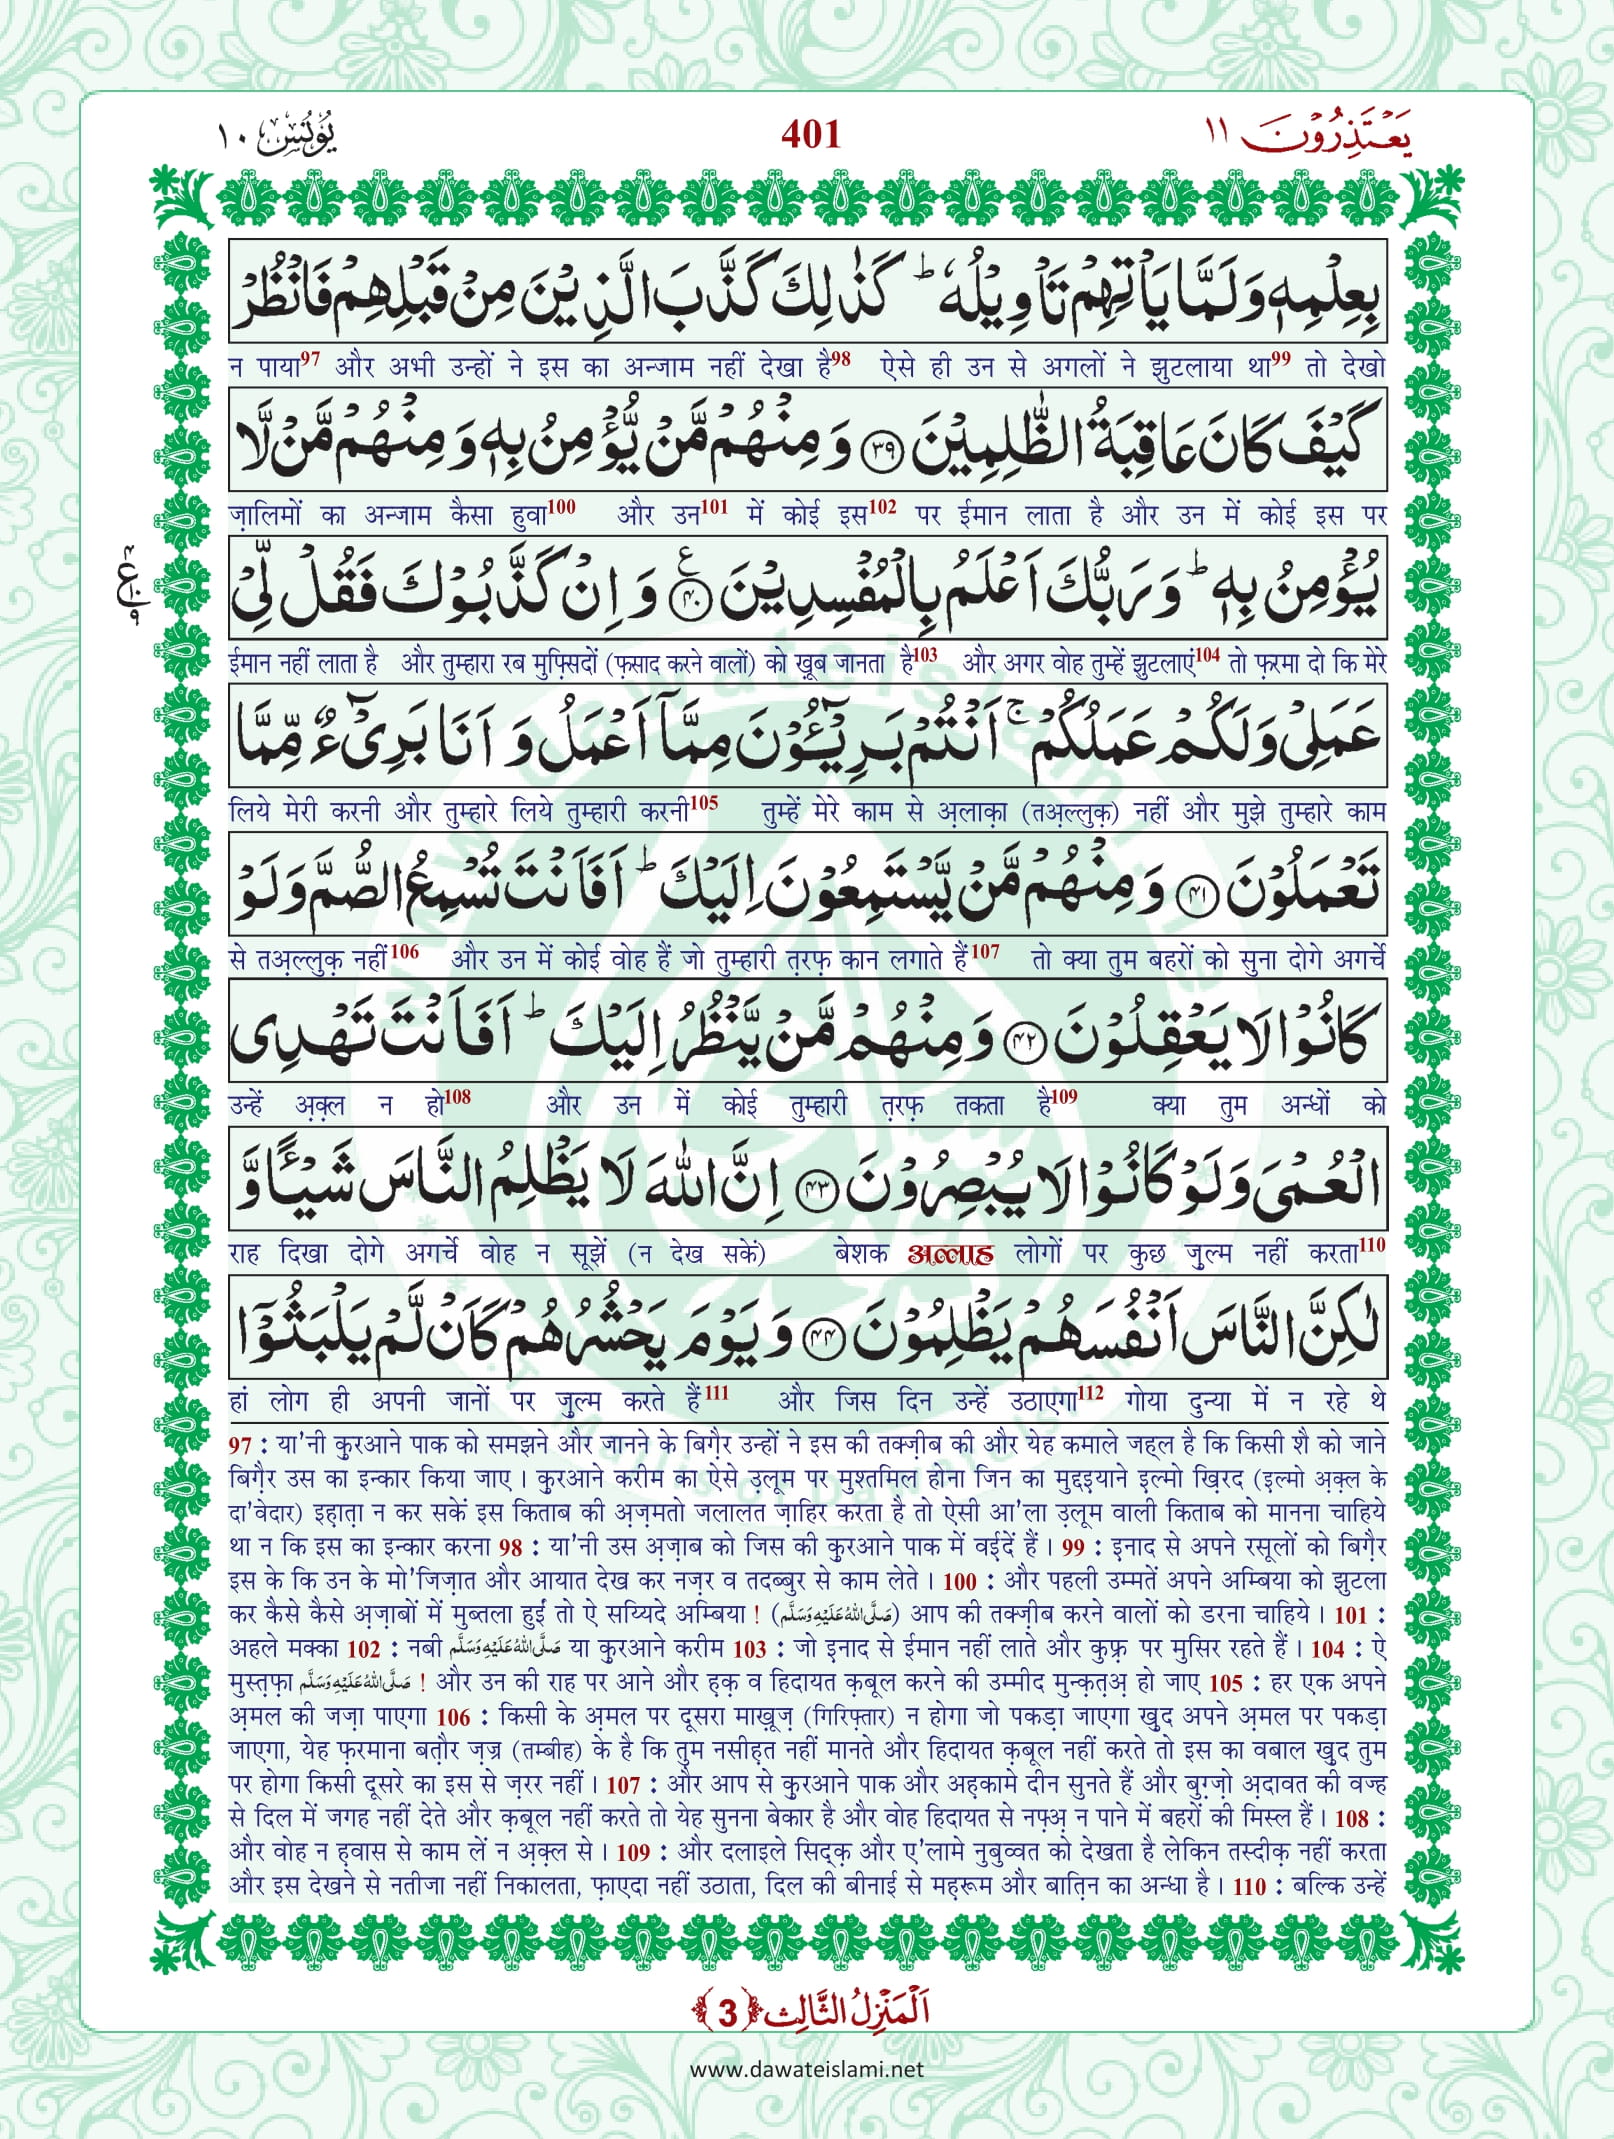 يَعْتَذِرُوْنَ ١١
401
يُوْنُس ١٠
بِعِلْمِهٖ وَ لَمَّا یَاْتِهِمْ تَاْوِیْلُهٗ ؕ كَذٰلِكَ كَذَّبَ الَّذِیْنَ مِنْ قَبْلِهِمْ فَانْظُرْ
न पाया97 और अभी उन्हों ने इस का अन्जाम नहीं देखा है98 ऐसे ही उन से अगलों ने झुटलाया था99 तो देखो
كَیْفَ كَانَ عَاقِبَةُ الظّٰلِمِیْنَ ﴿۳۹﴾ وَ مِنْهُمْ مَّنْ یُّؤْمِنُ بِهٖ وَ مِنْهُمْ مَّنْ لَّا
ज़ालिमों का अन्जाम कैसा हुवा100 और उन101 में कोई इस102 पर ईमान लाता है और उन में कोई इस पर
یُؤْمِنُ بِهٖ ؕ وَ رَبُّكَ اَعْلَمُ بِالْمُفْسِدِیْنَ ﴿۴۰﴾ ع وَ اِنْ كَذَّبُوْكَ فَقُلْ لِّیْ
ईमान नहीं लाता है और तुम्हारा रब मुफ़्सिदों (फ़साद करने वालों) को ख़ूब जानता है103 और अगर वोह तुम्हें झुटलाएं104 तो फ़रमा दो कि मेरे
عَمَلِیْ وَ لَكُمْ عَمَلُكُمْ ۚ اَنْتُمْ بَرِیْٓـُٔوْنَ مِمَّاۤ اَعْمَلُ وَ اَنَا بَرِیْٓءٌ مِّمَّا
लिये मेरी करनी और तुम्हारे लिये तुम्हारी करनी105 तुम्हें मेरे काम से अ़लाक़ा (तअ़ल्लुक़) नहीं और मुझे तुम्हारे काम
تَعْمَلُوْنَ ﴿۴۱﴾ وَ مِنْهُمْ مَّنْ یَّسْتَمِعُوْنَ اِلَیْكَ ؕ اَفَاَنْتَ تُسْمِعُ الصُّمَّ وَ لَوْ
से तअ़ल्लुक़ नहीं106 और उन में कोई वोह हैं जो तुम्हारी त़रफ़ कान लगाते हैं107 तो क्या तुम बहरों को सुना दोगे अगर्चे
كَانُوْا لَا یَعْقِلُوْنَ ﴿۴۲﴾ وَ مِنْهُمْ مَّنْ یَّنْظُرُ اِلَیْكَ ؕ اَفَاَنْتَ تَهْدِی
उन्हें अ़क़्ल न हो108 और उन में कोई तुम्हारी त़रफ़ तकता है109 क्या तुम अन्धों को
الْعُمْیَ وَ لَوْ كَانُوْا لَا یُبْصِرُوْنَ ﴿۴۳﴾ اِنَّ اللّٰهَ لَا یَظْلِمُ النَّاسَ شَیْــٴًـا وَّ
राह दिखा दोगे अगर्चे वोह न सूझें (न देख सकें) बेशक अल्लाह लोगों पर कुछ ज़ुल्म नहीं करता110
لٰكِنَّ النَّاسَ اَنْفُسَهُمْ یَظْلِمُوْنَ ﴿۴۴﴾ وَ یَوْمَ یَحْشُرُهُمْ كَاَنْ لَّمْ یَلْبَثُوْۤا
हां लोग ही अपनी जानों पर ज़ुल्म करते हैं111 और जिस दिन उन्हें उठाएगा112 गोया दुन्या में न रहे थे
97 : या'नी क़ुरआने पाक को समझने और जानने के बिग़ैर उन्हों ने इस की तक्ज़ीब की और येह कमाले जह्ल है कि किसी शै को जाने
बिग़ैर उस का इन्कार किया जाए । क़ुरआने करीम का ऐसे उ़लूम पर मुश्तमिल होना जिन का मुद्दइयाने इल्मो ख़िरद (इल्मो अ़क़्ल के
दा'वेदार) इह़ात़ा न कर सकें इस किताब की अ़ज़मतो जलालत ज़ाहिर करता है तो ऐसी आ'ला उ़लूम वाली किताब को मानना चाहिये
था न कि इस का इन्कार करना 98 : या'नी उस अ़ज़ाब को जिस की क़ुरआने पाक में वईदें हैं । 99 : इनाद से अपने रसूलों को बिग़ैर
इस के कि उन के मो'जिज़ात और आयात देख कर नज़र व तदब्बुर से काम लेते । 100 : और पहली उम्मतें अपने अम्बिया को झुटला
कर कैसे कैसे अ़ज़ाबों में मुब्तला हुईं तो ऐ सय्यिदे अम्बिया ! (صَلَّى اللهُ عَلَيْهِ وَسَلَّم) आप की तक्ज़ीब करने वालों को डरना चाहिये । 101 :
अहले मक्का 102 : नबी صَلَّى اللهُ عَلَيْهِ وَسَلَّم या क़ुरआने करीम 103 : जो इनाद से ईमान नहीं लाते और कुफ़्र पर मुसिर रहते हैं । 104 : ऐ
मुस्त़फ़ा صَلَّى اللهُ عَلَيْهِ وَسَلَّم ! और उन की राह पर आने और ह़क़ व हिदायत क़बूल करने की उम्मीद मुन्क़त़अ़ हो जाए 105 : हर एक अपने
अ़मल की जज़ा पाएगा 106 : किसी के अ़मल पर दूसरा माख़ूज़ (गिरिफ़्तार) न होगा जो पकड़ा जाएगा ख़ुद अपने अ़मल पर पकड़ा
जाएगा, येह फ़रमाना बत़ौर ज़ज्र (तम्बीह) के है कि तुम नसीह़त नहीं मानते और हिदायत क़बूल नहीं करते तो इस का वबाल ख़ुद तुम
पर होगा किसी दूसरे का इस से ज़रर नहीं । 107 : और आप से क़ुरआने पाक और अह़कामे दीन सुनते हैं और बुग़्ज़ो अ़दावत की वज्ह
से दिल में जगह नहीं देते और क़बूल नहीं करते तो येह सुनना बेकार है और वोह हिदायत से नफ़्अ़ न पाने में बहरों की मिस्ल हैं । 108 :
और वोह न ह़वास से काम लें न अ़क़्ल से । 109 : और दलाइले सिद्क़ और ए'लामे नुबुव्वत को देखता है लेकिन तस्दीक़ नहीं करता
और इस देखने से नतीजा नहीं निकालता, फ़ाएदा नहीं उठाता, दिल की बीनाई से मह़रूम और बात़िन का अन्धा है । 110 : बल्कि उन्हें
اَلْمَنْزِلُ الثَّالِث ﴿3﴾
www.dawateislami.net